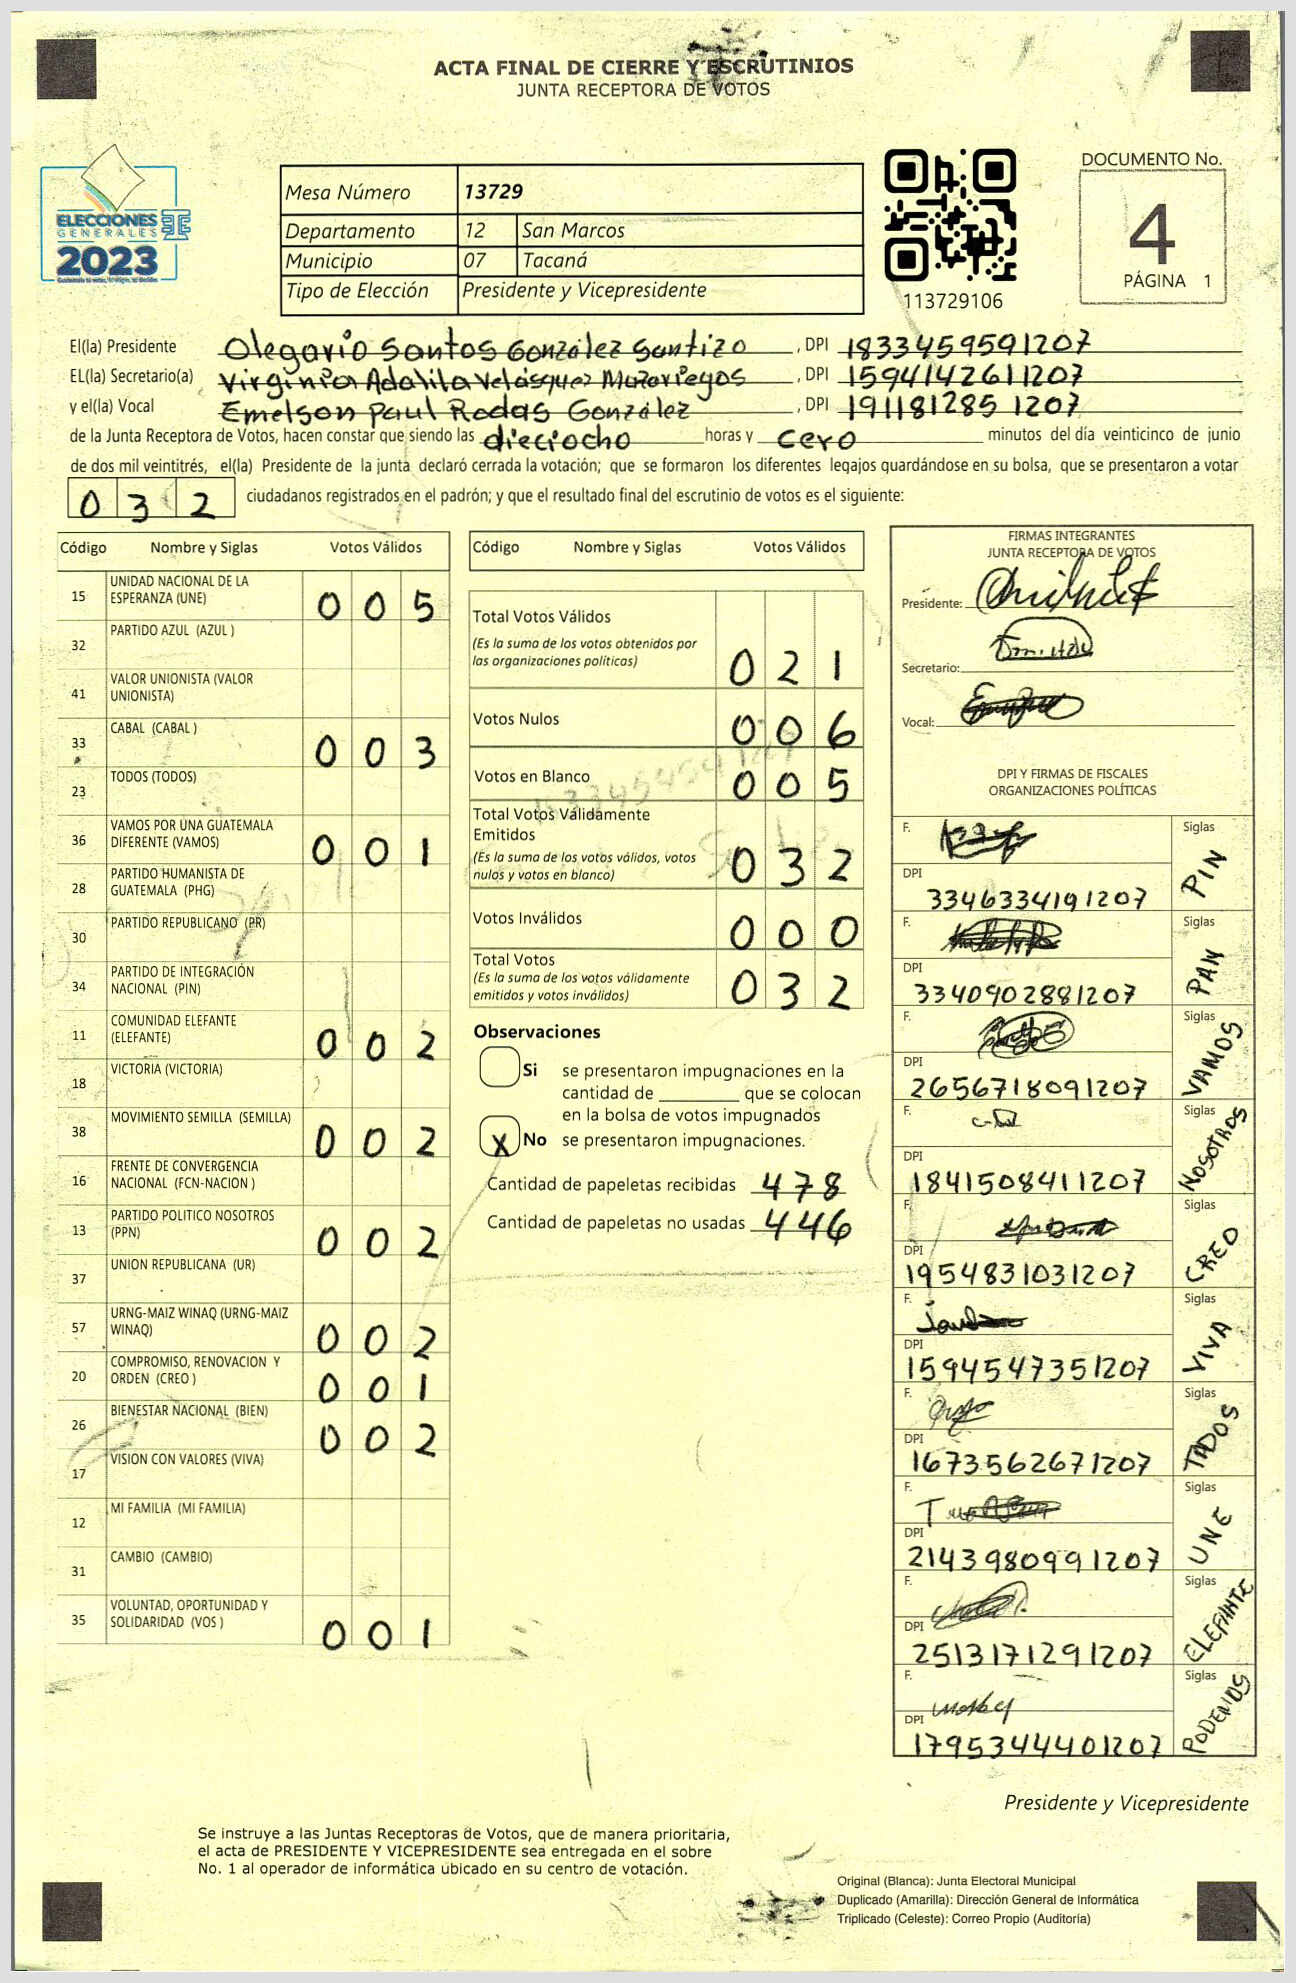 ACTA FINAL DE CIERRE Y ESCRUTINIOS
JUNTA RECEPTORA DE VOTOS
ELECCIONES
GENERALES
2023
Mesa Número 13729
Departamento 12 San Marcos
Municipio 07 Tacaná
Tipo de Elección Presidente y Vicepresidente
113729106
DOCUMENTO No.
4
PÁGINA 1
El(la) Presidente Olegario Santos González Santizo, DPI 1833459591207
EL(la) Secretario(a) Virginia Adalila Velásquez Mazariegos, DPI 1594142611207
y el(la) Vocal Emelson Paul Rodas González, DPI 191181285 1207
de la Junta Receptora de Votos, hacen constar que siendo las dieciocho horas y cero minutos del día veinticinco de junio
de dos mil veintitrés, el(la) Presidente de la junta declaró cerrada la votación; que se formaron los diferentes legajos guardándose en su bolsa, que se presentaron a votar
0 3 2 ciudadanos registrados en el padrón; y que el resultado final del escrutinio de votos es el siguiente:
Código Nombre y Siglas Votos Válidos
15 UNIDAD NACIONAL DE LA
ESPERANZA (UNE) 0 0 5
32 PARTIDO AZUL (AZUL )
41 VALOR UNIONISTA (VALOR
UNIONISTA)
33 CABAL (CABAL ) 0 0 3
23 TODOS (TODOS)
36 VAMOS POR UNA GUATEMALA
DIFERENTE (VAMOS) 0 0 1
28 PARTIDO HUMANISTA DE
GUATEMALA (PHG)
30 PARTIDO REPUBLICANO (PR)
34 PARTIDO DE INTEGRACIÓN
NACIONAL (PIN)
11 COMUNIDAD ELEFANTE
(ELEFANTE) 0 0 2
18 VICTORIA (VICTORIA)
38 MOVIMIENTO SEMILLA (SEMILLA) 0 0 2
16 FRENTE DE CONVERGENCIA
NACIONAL (FCN-NACION )
13 PARTIDO POLITICO NOSOTROS
(PPN) 0 0 2
37 UNION REPUBLICANA (UR)
57 URNG-MAIZ WINAQ (URNG-MAIZ
WINAQ) 0 0 2
20 COMPROMISO, RENOVACION Y
ORDEN (CREO ) 0 0 1
26 BIENESTAR NACIONAL (BIEN) 0 0 2
17 VISION CON VALORES (VIVA)
12 MI FAMILIA (MI FAMILIA)
31 CAMBIO (CAMBIO)
35 VOLUNTAD, OPORTUNIDAD Y
SOLIDARIDAD (VOS ) 0 0 1
Código Nombre y Siglas Votos Válidos
Total Votos Válidos
(Es la suma de los votos obtenidos por
las organizaciones políticas) 0 2 1
Votos Nulos 0 0 6
Votos en Blanco 0 0 5
Total Votos Válidamente
Emitidos
(Es la suma de los votos válidos, votos
nulos y votos en blanco) 0 3 2
Votos Inválidos 0 0 0
Total Votos
(Es la suma de los votos válidamente
emitidos y votos inválidos) 0 3 2
Observaciones
Si se presentaron impugnaciones en la
cantidad de ________ que se colocan
en la bolsa de votos impugnados
X No se presentaron impugnaciones.
Cantidad de papeletas recibidas 478
Cantidad de papeletas no usadas 446
FIRMAS INTEGRANTES
JUNTA RECEPTORA DE VOTOS
Presidente:
Secretario:
Vocal:
DPI Y FIRMAS DE FISCALES
ORGANIZACIONES POLÍTICAS
F. Siglas PIN
DPI 3346334191207
F. Siglas PAN
DPI 3340902881207
F. Siglas VAMOS
DPI 2656718091207
F. Siglas NOSOTROS
DPI 1841508411207
F. Siglas CREO
DPI 1954831031207
F. Siglas VIVA
DPI 1594547351207
F. Siglas TADOS
DPI 1673562671207
F. Siglas UNE
DPI 2143980991207
F. Siglas ELEFANTE
DPI 2513171291207
F. Siglas PODEMOS
DPI 1795344401207
Presidente y Vicepresidente
Se instruye a las Juntas Receptoras de Votos, que de manera prioritaria,
el acta de PRESIDENTE Y VICEPRESIDENTE sea entregada en el sobre
No. 1 al operador de informática ubicado en su centro de votación.
Original (Blanca): Junta Electoral Municipal
Duplicado (Amarilla): Dirección General de Informática
Triplicado (Celeste): Correo Propio (Auditoría)